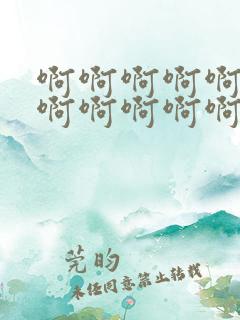 啊啊啊啊啊
啊啊啊啊啊
莞昀
未经同意禁止转载